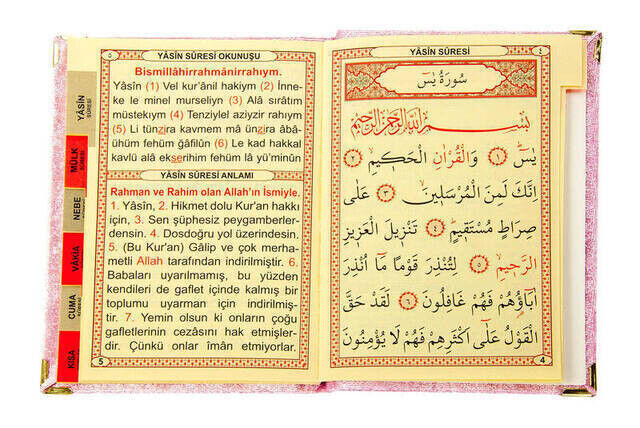 ٥ YÂSİN SÛRESİ OKUNUŞU
Bismillâhirrahmânirrahıym.
Yâsîn (1) Vel kur'ânil hakiym (2) İnne-
ke le minel murseliyn (3) Alâ sırâtım
müstekiym (4) Tenziylel aziyzir rahıym
(5) Li tünzira kavmem mâ ünzira âbâ-
ühüm fehüm ğâfilûn (6) Le kad hakkal
kavlü alâ ekserihim fehüm lâ yü'minûn
YÂSİN SÛRESİ ANLAMI
Rahman ve Rahim olan Allah'ın İsmiyle.
1. Yâsîn, 2. Hikmet dolu Kur'an hakkı
için, 3. Sen şüphesiz peygamberler-
densin. 4. Dosdoğru yol üzerindesin.
5. (Bu Kur'an) Gâlip ve çok merha-
metli Allah tarafından indirilmiştir. 6.
Babaları uyarılmamış, bu yüzden
kendileri de gaflet içinde kalmış bir
toplumu uyarman için indirilmiş-
tir. 7. Yemin olsun ki onların çoğu
gafletlerinin cezasını hak etmişler-
dir. Çünkü onlar îmân etmiyorlar.
5
YÂSİN SÛRESİ
MÜLK SÛRESİ
NEBE
VAKIA
CUMA
KISA
YÂSİN SÛRESİ ٤
سُورَةُ يٰسٓ
بِسْمِ اللّٰهِ الرَّحْمٰنِ الرَّحِيمِ
يٰسٓ ﴿١﴾ وَالْقُرْاٰنِ الْحَكِيمِ ﴿٢﴾
اِنَّكَ لَمِنَ الْمُرْسَلِينَ ﴿٣﴾ عَلٰى
صِرَاطٍ مُسْتَقِيمٍ ﴿٤﴾ تَنْزِيلَ الْعَزِيزِ
الرَّحِيمِ ﴿٥﴾ لِتُنْذِرَ قَوْمًا مَٓا اُنْذِرَ
اٰبَٓاؤُ۬هُمْ فَهُمْ غَافِلُونَ ﴿٦﴾ لَقَدْ حَقَّ
الْقَوْلُ عَلٰٓى اَكْثَرِهِمْ فَهُمْ لَا يُؤْمِنُونَ
4